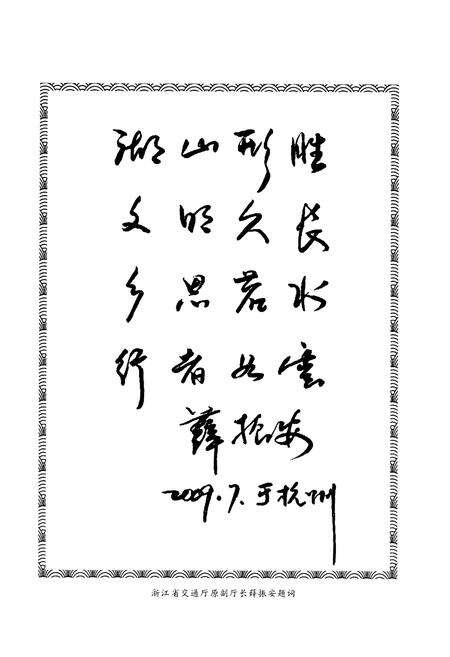 湖山形胜
文明久长
乡思若水
行者如云
薛振安
2009.7.于杭州
浙江省交通厅原副厅长薛振安题词